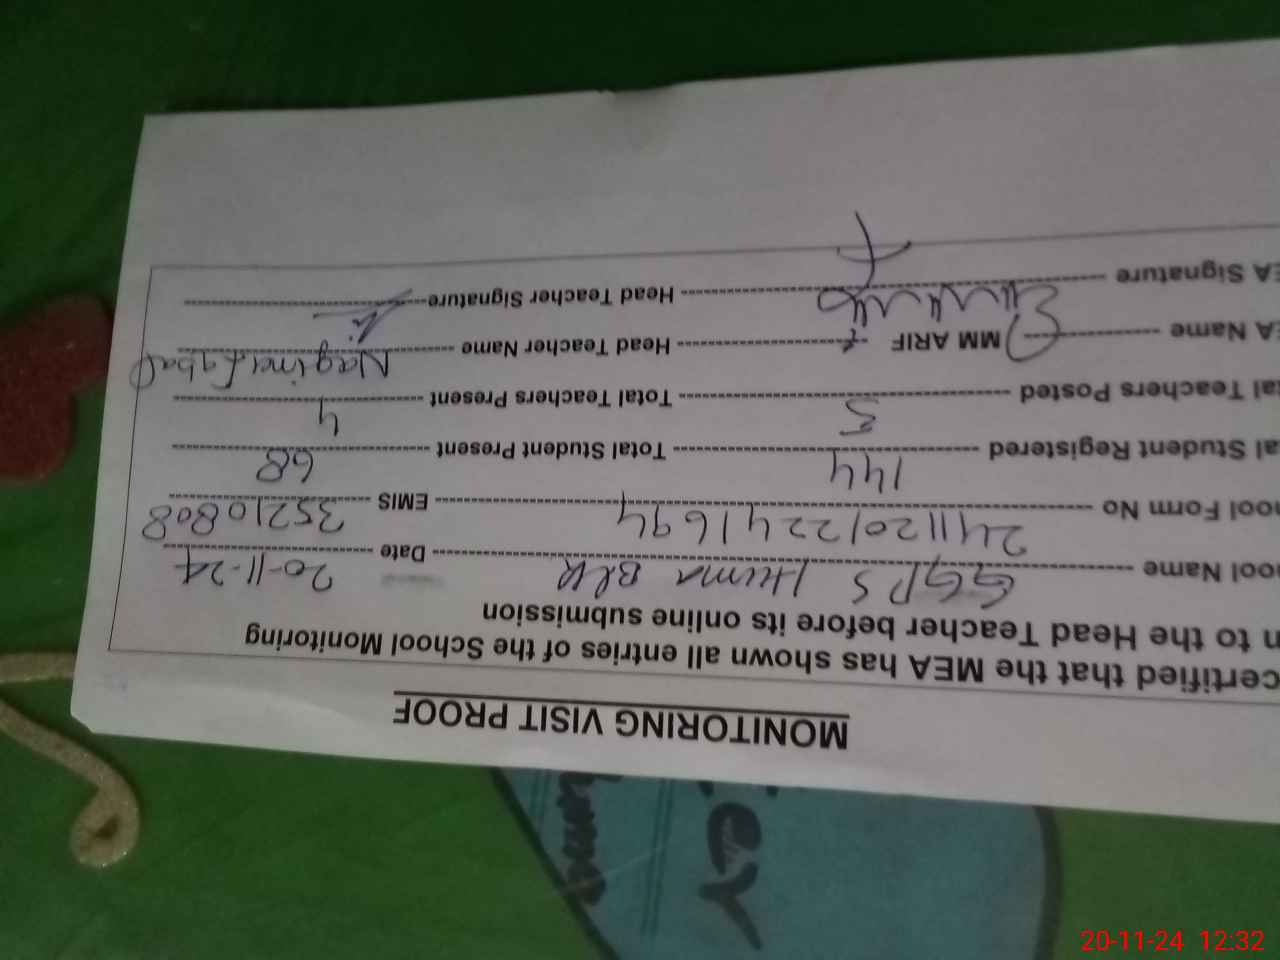 MONITORING VISIT PROOF
certified that the MEA has shown all entries of the School Monitoring
to the Head Teacher before its online submission
Name GGPS Huma Blk Date 20-11-24
Form No 241120122441694 EMIS 35210808
Student Registered 144 Total Student Present 68
Teachers Posted 5 Total Teachers Present 4
Name MM ARIF Head Teacher Name Nagina
Signature Head Teacher Signature
20-11-24 12:32